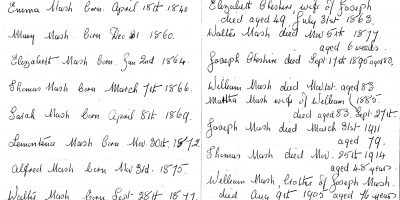 Emma Mash born. April 18th 1840
Mary Mash Born Dec 21 1860.
Elizabeth Mash Born. Jan 2nd 1864.
Thomas Mash Born March 7th 1866.
Sarah Mash Born April 8th 1869.
Mash Born Nov 30th 1872
Alfred Mash born Nov 3rd. 1875.
Walter Mash born Sept. 28th 1877
Elizabeth Cheshire, wife of Joseph
died aged 49 July 31st 1863.
Walter Mash died Nov 5th 1877
aged 6 weeks.
Joseph Cheshire died Sept 17th 1895 aged 80,
William Mash died Nov 1st. aged 83
Martha Mash wife of William 1885
died aged 83. Sept. 27th.
Joseph Mash died March 31st 1911
aged 79.
Thomas Mash died Nov. 25th 1914
aged 48 years.
William Mash, brother of Joseph Mash.
died Aug 9th 1905 aged 76 years